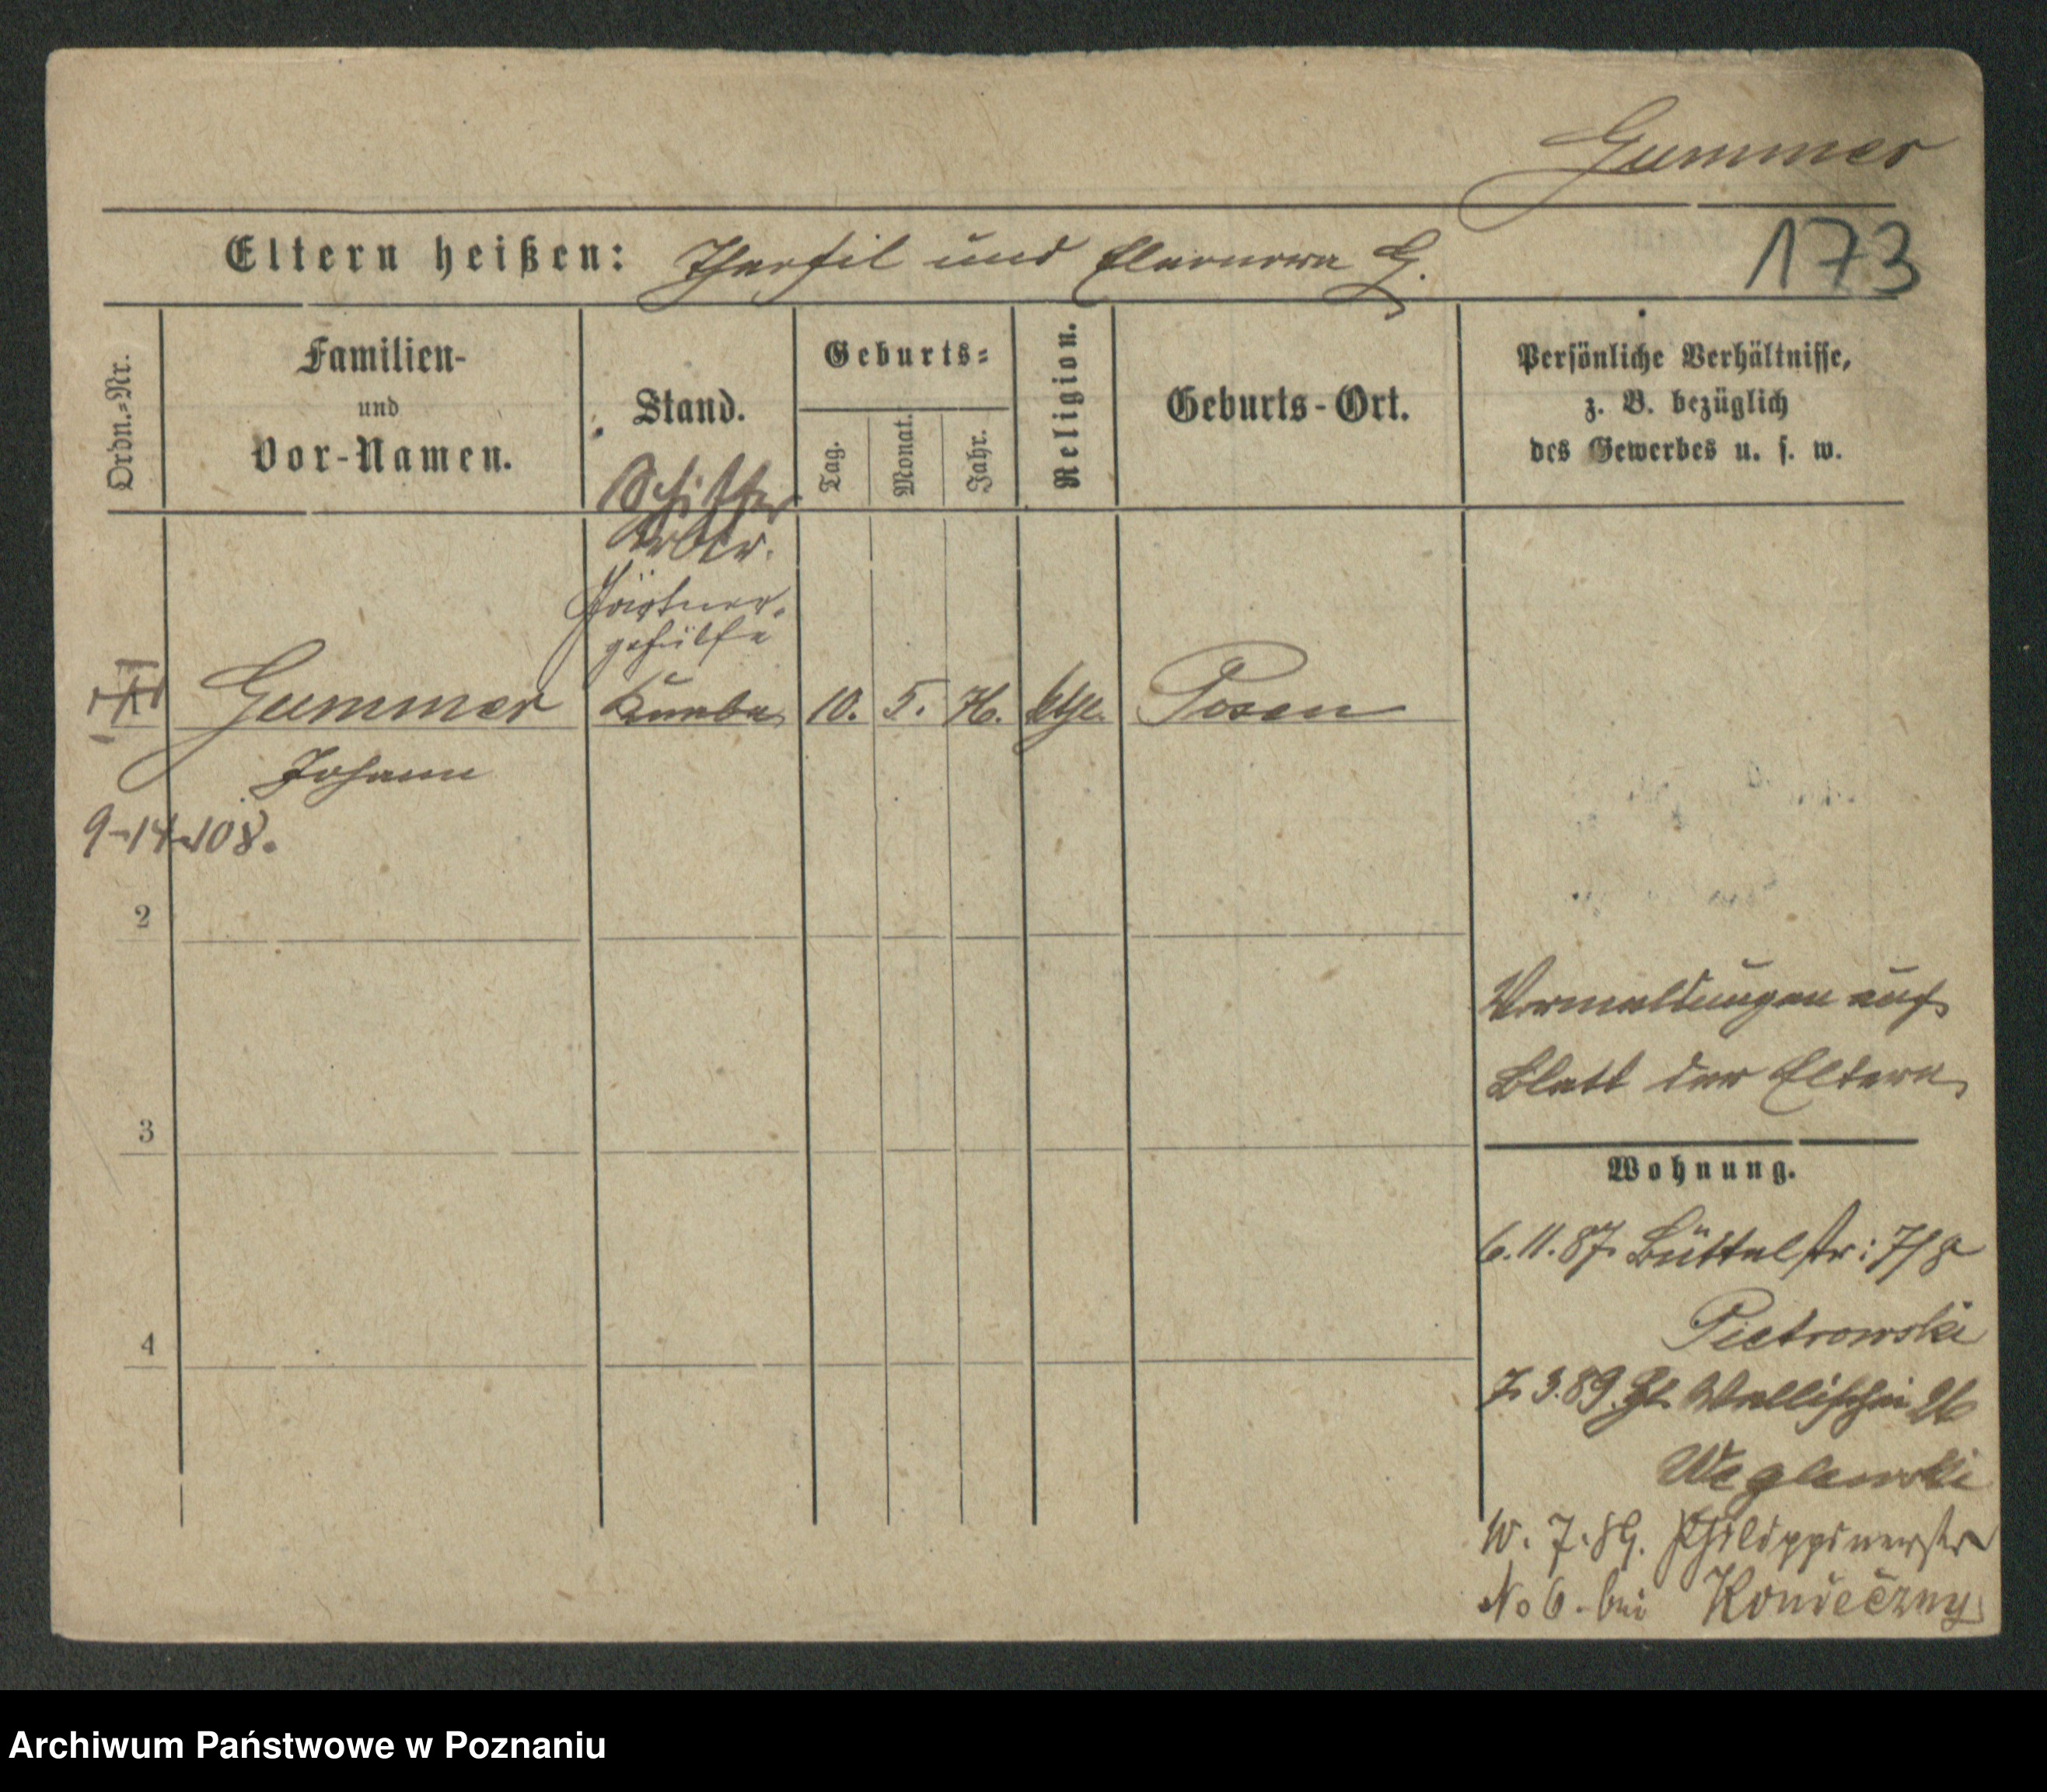 Gummer
173
Eltern heißen: Theofil und Eleonora G.
Ordn.=Nr.
Familien-
und
Vor-Namen.
Stand.
Geburts=
Tag.
Monat.
Jahr.
Religion.
Geburts-Ort.
Persönliche Verhältnisse,
z. B. bezüglich
des Gewerbes u. s. w.
Schiffer
Arbtr.
Gärtner-
gehülfe
Gummer Knabe 10. 5. 76. ktl. Posen
Johann
9-14-108.
2
3
4
Vermeldungen auf
Blatt der Eltern
Wohnung.
6.11.87. Büttelstr: 7/8
Pietrowski
7.3.89. Wallischei 26
Weglewski
W. 7.89. Philippinerstr
No 6 - bei Konieczny
Archiwum Państwowe w Poznaniu